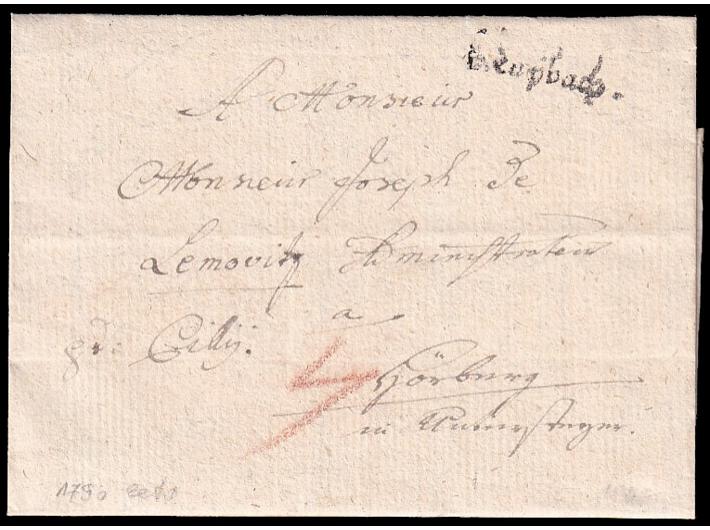 Laybach.
A Monsieur
Monsieur Joseph De
Lemovitz Administrateur
a
pr: Cilly.
Hörburg
in Untersteyer.
1790